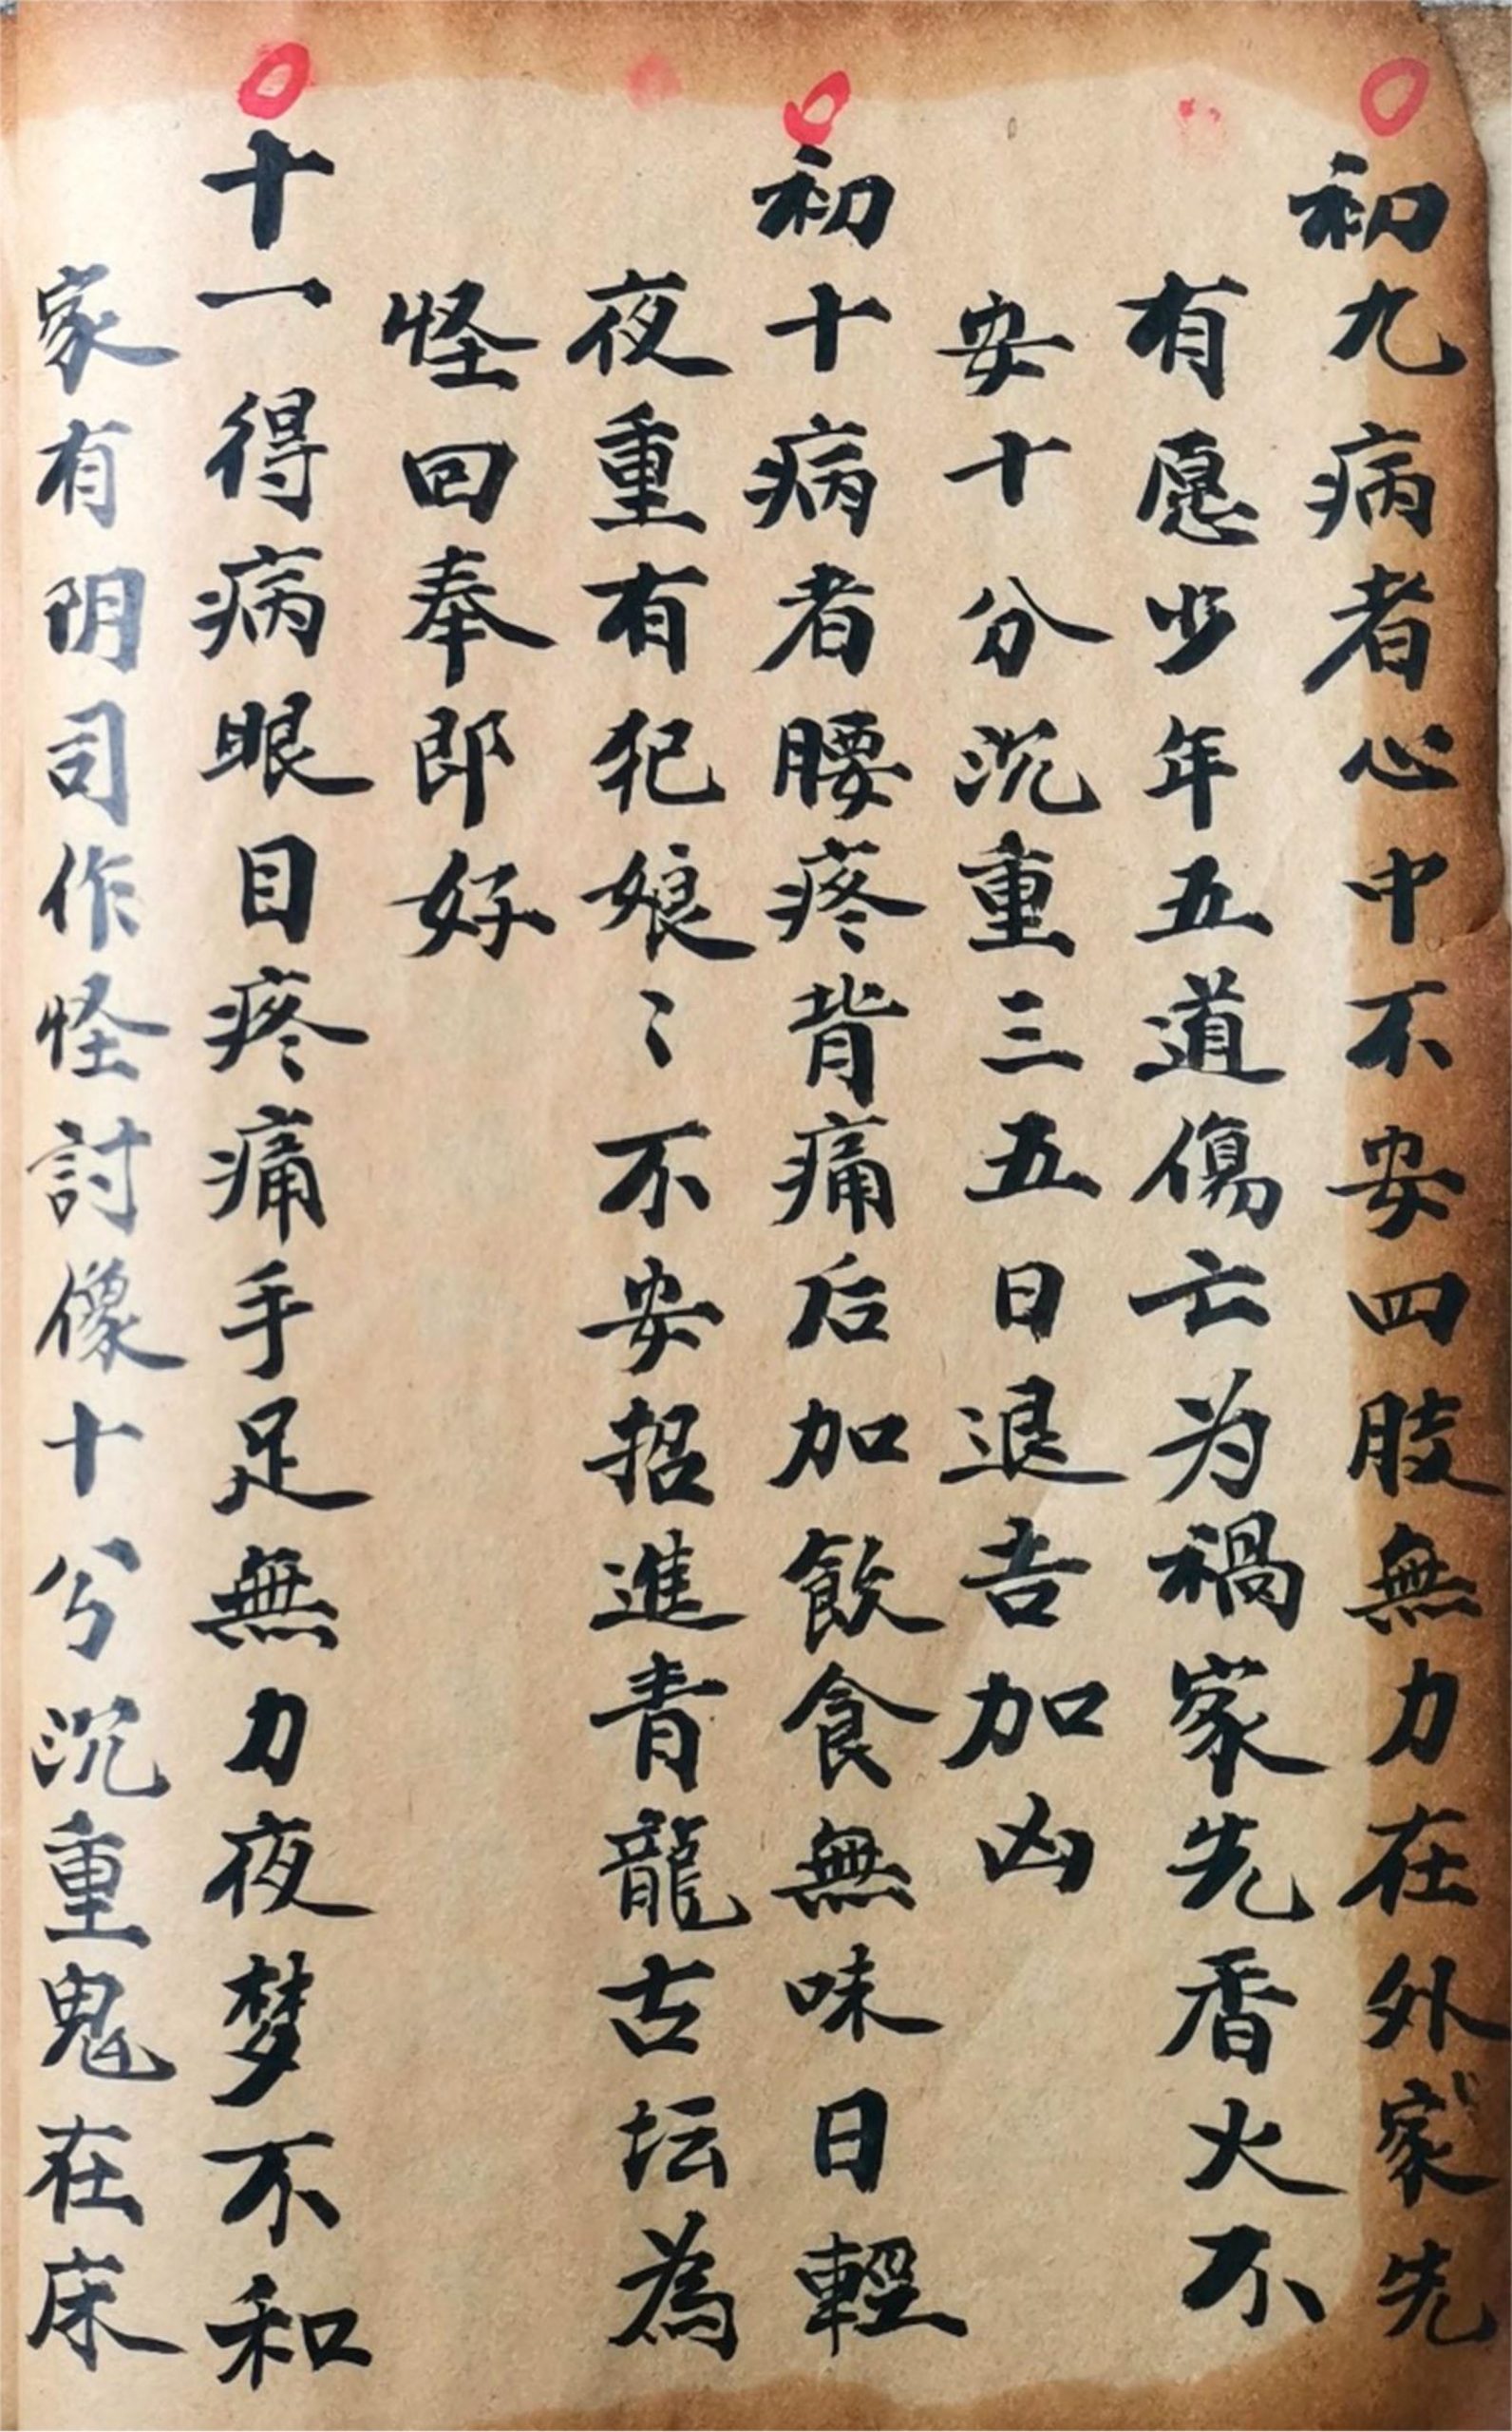 初九病者心中不安四肢無力在外家先
有愿少年五道傷亡为禍家先香火不
安十分沉重三五日退吉加凶
初十病者腰疼背痛后加飲食無味日輕
夜重有犯娘〻不安招進青龍古坛為
怪回奉郎好
十一得病眼目疼痛手足無力夜梦不和
家有阴司作怪討像十兮沉重鬼在床